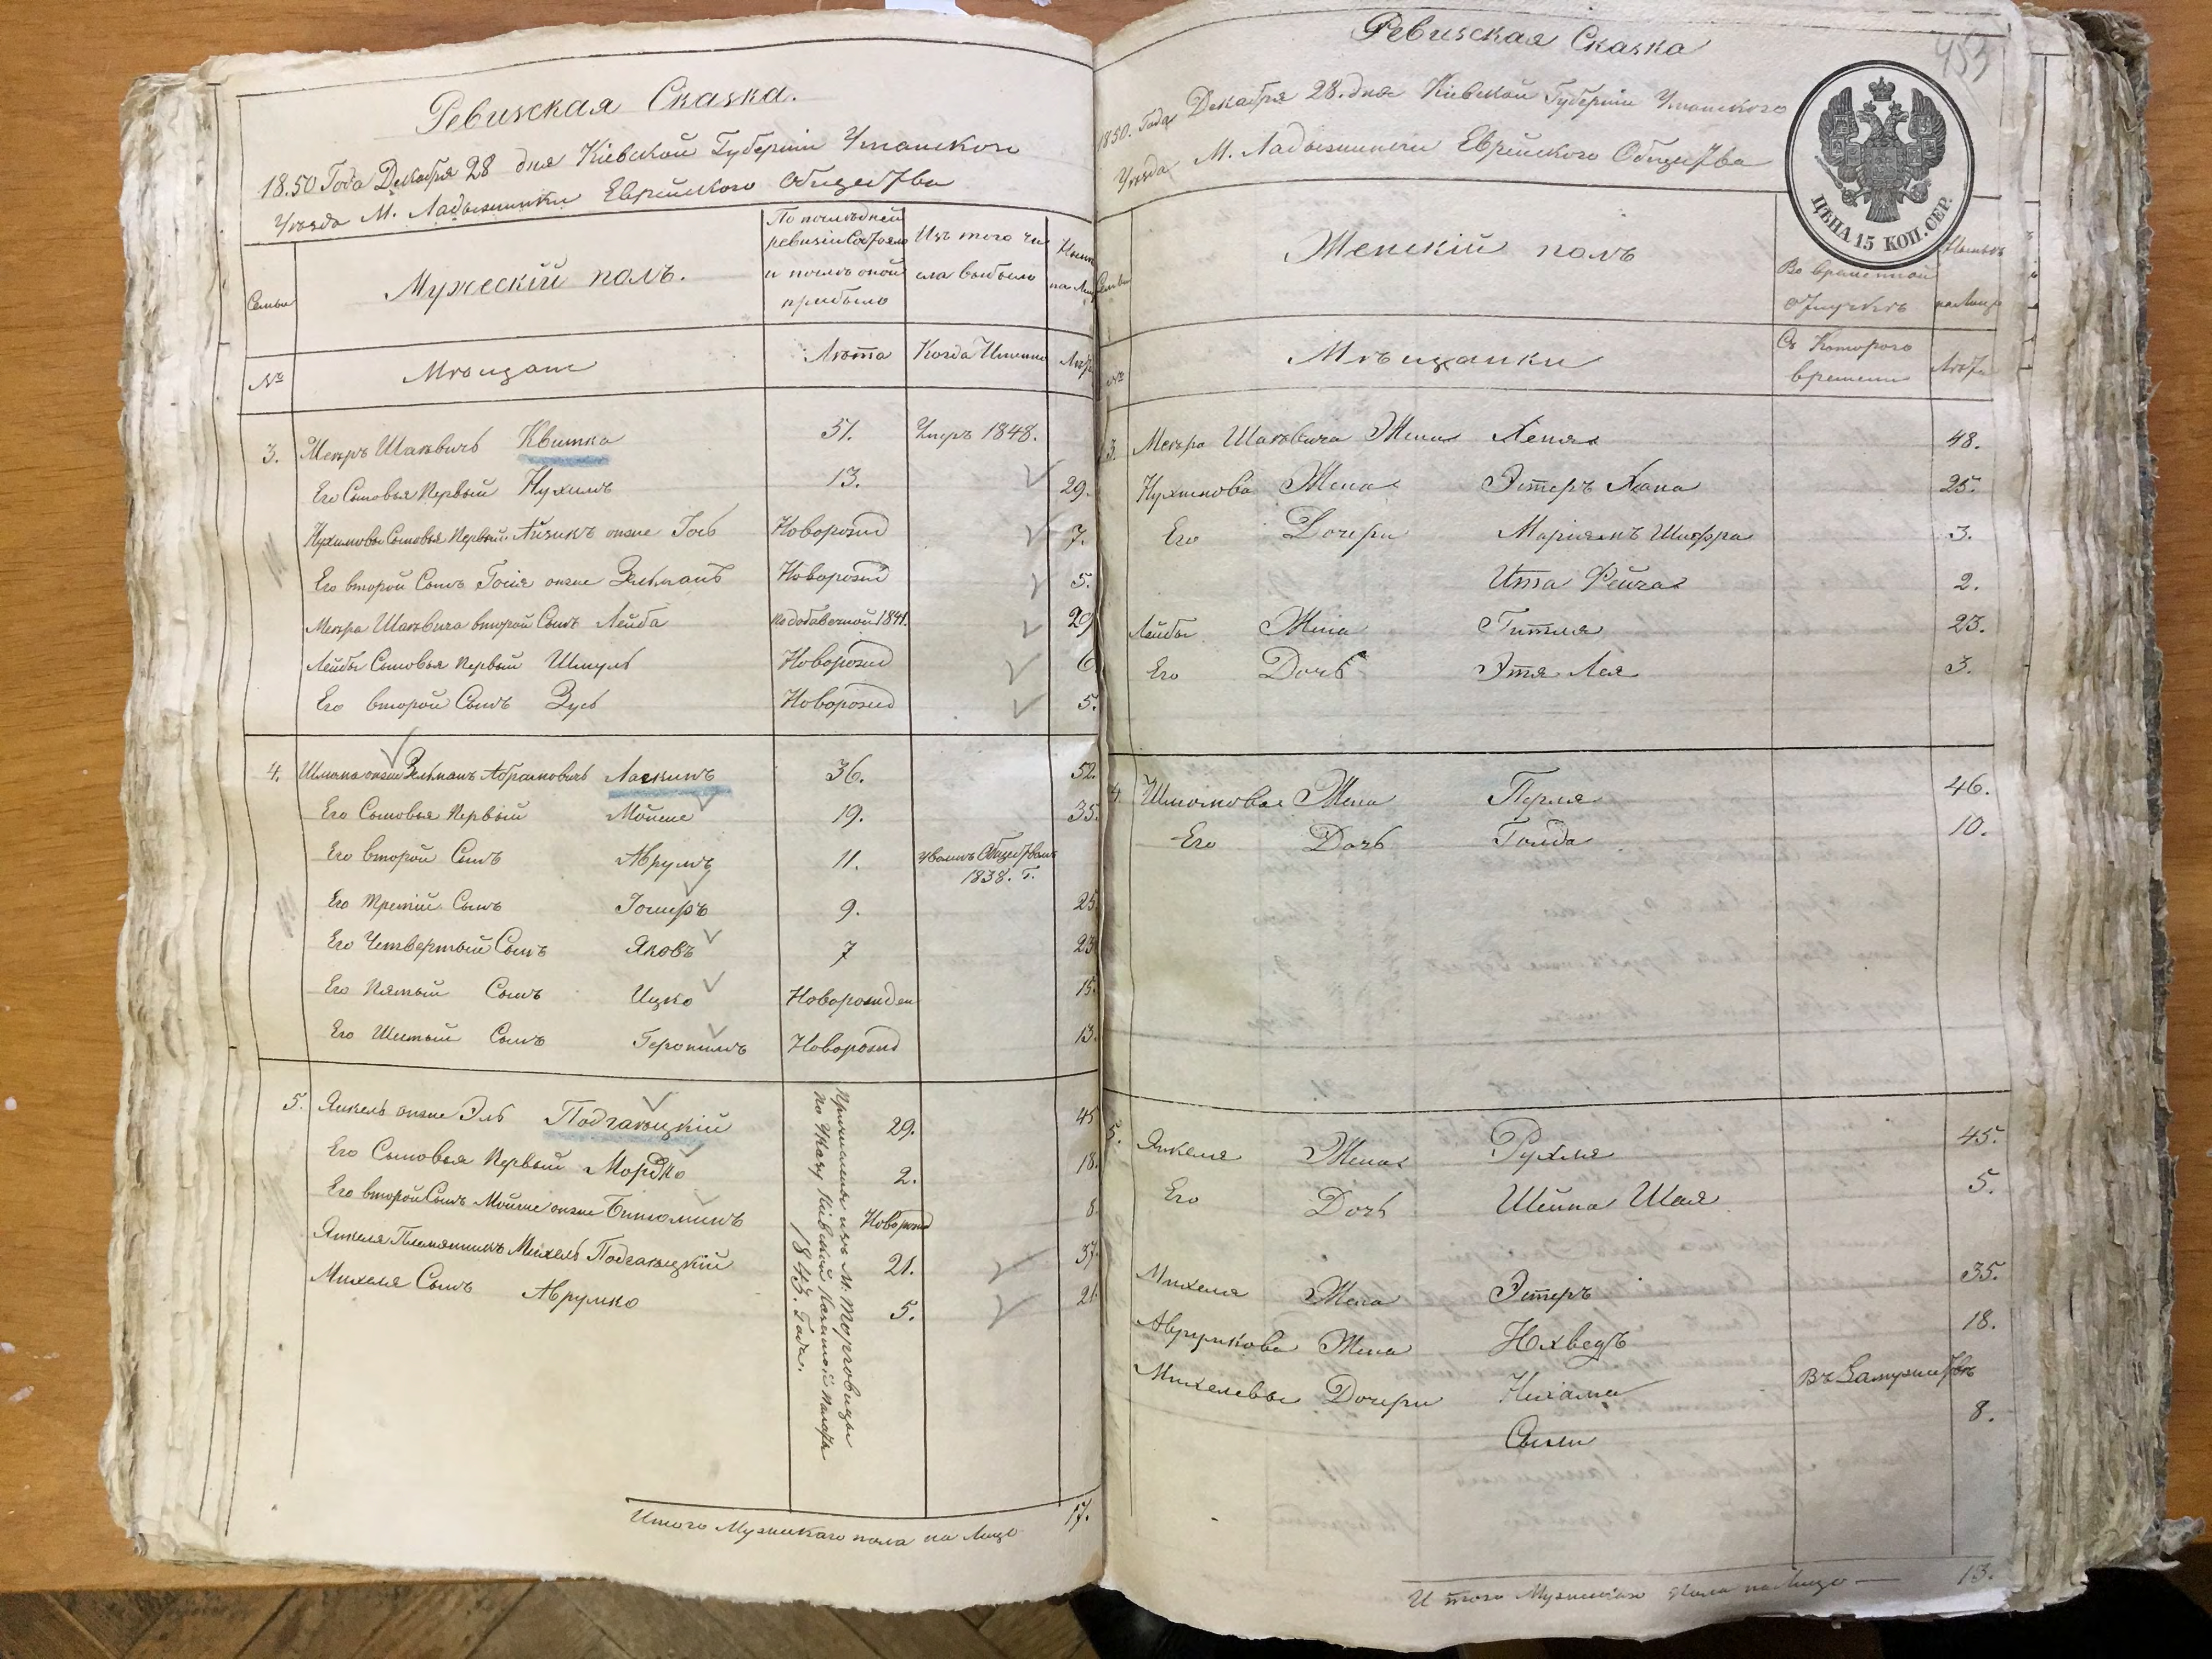 Ревизская Сказка.
1850 Года Декабря 28 дня Кіевской Губерніи Уманского
Уѣзда М. Ладыжинки Еврейского Общества
Семьи
Мужескій полъ.
По послѣдней ревизіи Состояло и послѣ оной прибыло
Изъ того числа выбыло
Нынѣ на Лицо
№
Мѣщане
Лѣта
Когда Именно
Лѣта
3. Мееръ Шаевичь Квитка 51. Умеръ 1848.
Его Сыновья Первый Нухимъ 13. 29.
Нухимовы Сыновья Первый Айзикъ онже Іось Новорожд 7.
Его второй Сынъ Госія онже Зельманъ Новорожд 5.
Меера Шаевича второй Сынъ Лейба по добавочной 1841. 29
Лейбы Сыновья Первый Шмуль Новорожд 6
Его второй Сынъ Зусь Новорожд 5.
4. Шлиома онже Зельманъ Абрамовичь Ласкинъ 36. 52.
Его Сыновья Первый Мойше 19. 35.
Его второй Сынъ Аврумъ 11. Обществомъ 1838. Г.
Его Третій Сынъ Іосифъ 9. 25.
Его Четвертый Сынъ Яковъ 7 23
Его Пятый Сынъ Ицко Новорожден 15.
Его Шестый Сынъ Геронимъ Новорожд 13.
5. Янкель онже Эль Подгаецкій 29. 45
Его Сыновья Первый Мордко 2. 18.
Его второй Сынъ Мойше онже Биниоминъ Новорожд 8.
Янкеля Племянникъ Михель Подгаецкій 21. 37.
Михеля Сынъ Аврумко 5. 21.
Причислены изъ М. Торговицы
по Указу Кіевской Казенной Палаты
1845. Года.
Итого Мужескаго пола на Лицо 17.
453
Ревизская Сказка
1850. Года Декабря 28. дня Кіевской Губерніи Уманского
Уѣзда М. Ладыжинки Еврейского Общества
ЦѢНА 15 КОП. СЕР.
Семьи
Женскій полъ
Во временной отлучкѣ
Нынѣ на Лицо
№
Мѣщанки
Съ Которого времени
Лѣта
3. Меера Шаевича Жена Хеня 48.
Нухимова Жена Эстеръ Хана 25.
Его Дочери Маріямъ Шифра 3.
Ита Фейга 2.
Лейбы Жена Гитля 23.
Его Дочь Этя Лея 3.
4. Шлиомова Жена Перля 46.
Его Дочь Голда 10.
5. Янкеля Жена Рухля 45.
Его Дочь Шейна Шая 5.
Михеля Жена Эстеръ 35.
Аврумкова Жена Юхведъ 18.
Михелевы Дочери Нихама Въ Замужествѣ
Сыли 8.
Итого Мужескаго пола на Лицо — 13.